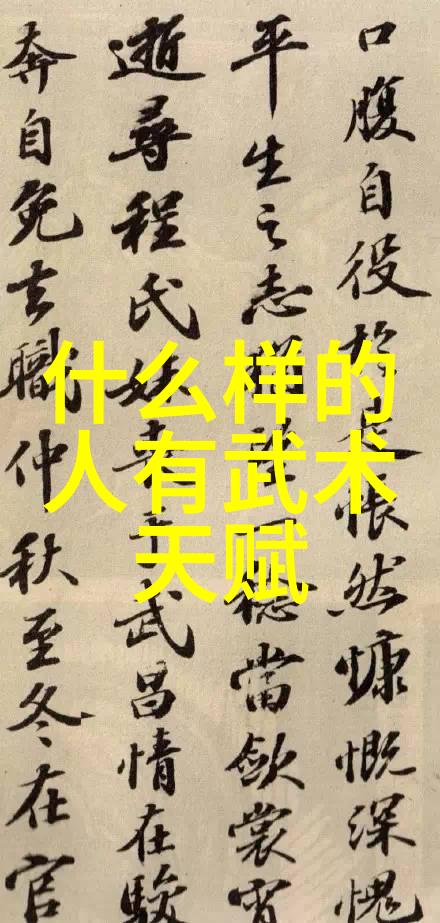 什么样的
人有武术
天赋
口腹自役於是悵然慷慨深愧
平生之志猶望一稔當歛裳宵
逝尋程氏妹喪于武昌情在駿
奔自免去職仲秋至冬在官